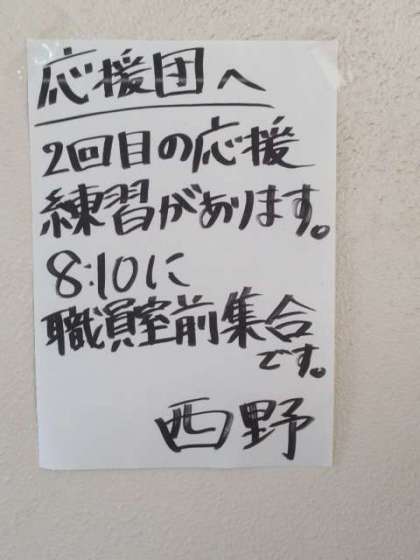 応援団へ
2回目の応援
練習があります。
8:10に
職員室前集合
です。
西野